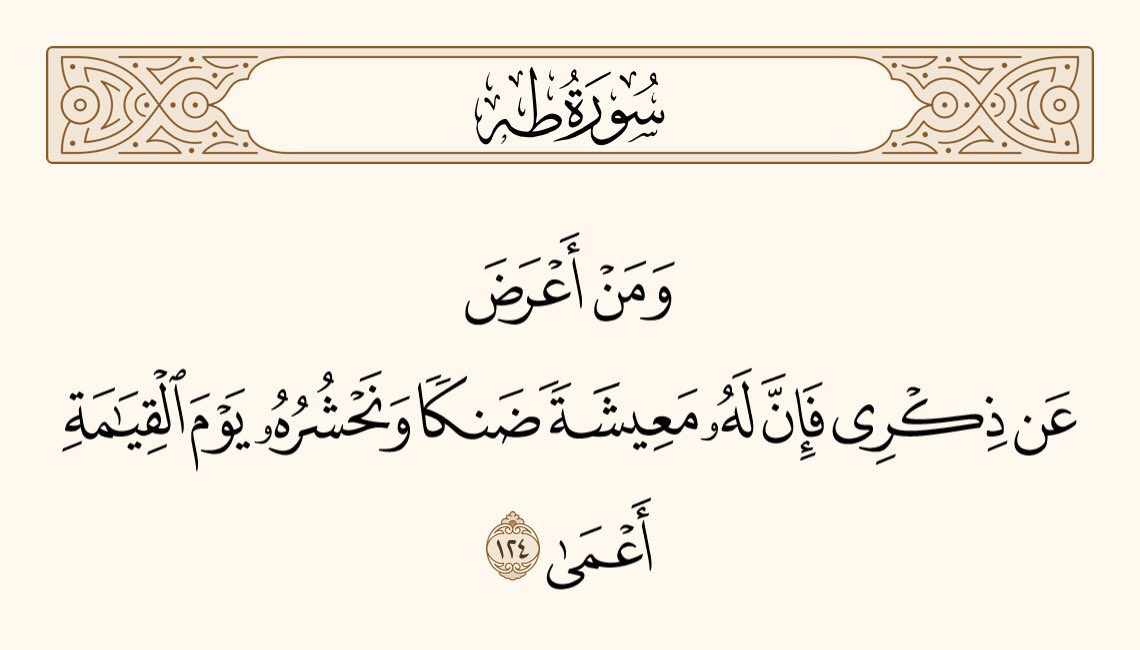 سُورَةُ طه
وَمَنْ أَعْرَضَ
عَن ذِكْرِى فَإِنَّ لَهُۥ مَعِيشَةً ضَنكًا وَنَحْشُرُهُۥ يَوْمَ ٱلْقِيَـٰمَةِ
أَعْمَىٰ ١٢٤